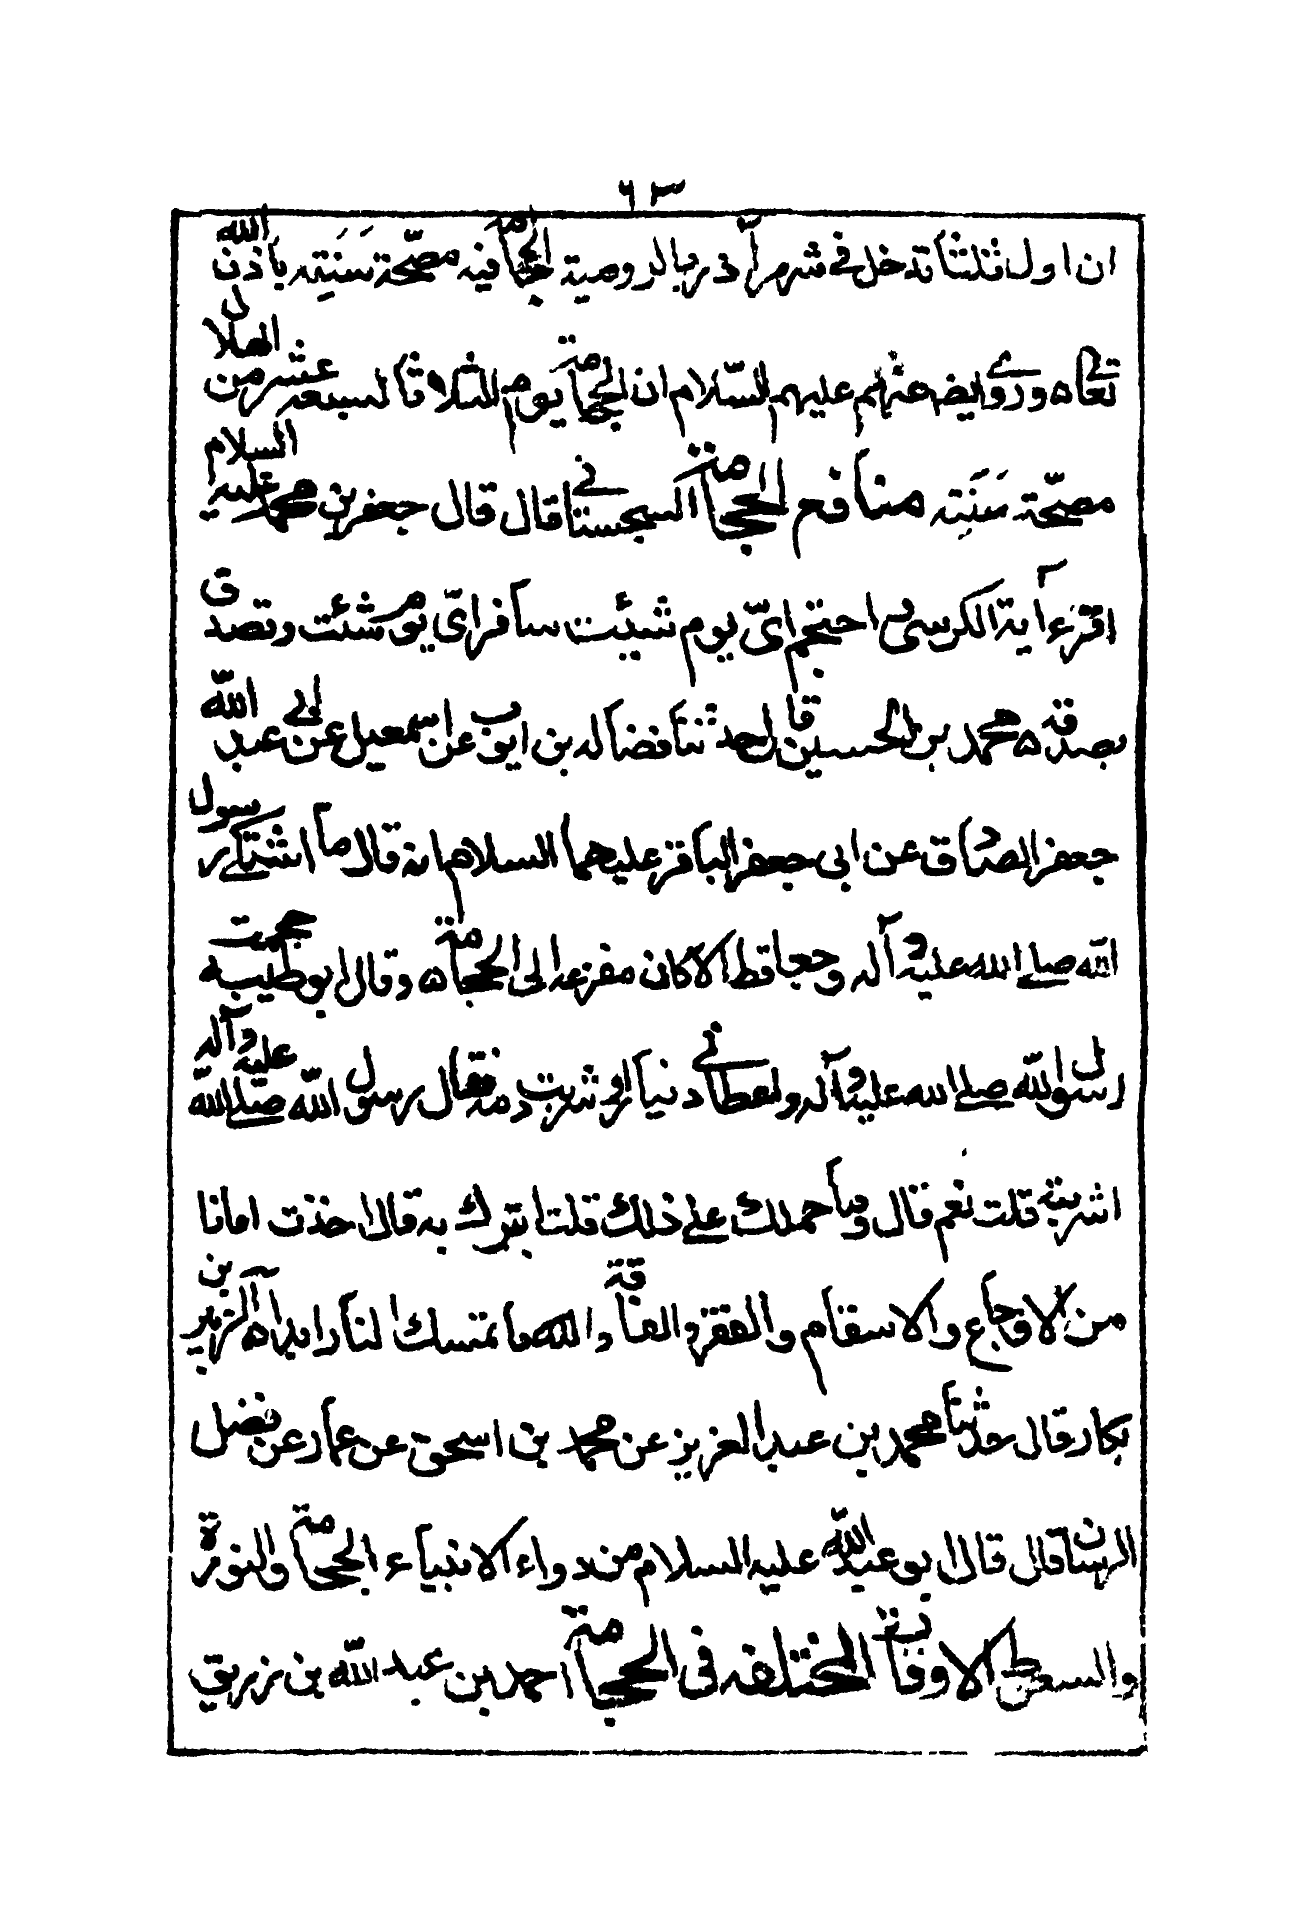 ٦٣
ان اول ثلثاء تدخل في شهر آذر بالرومية الحجامة فيه مصحة سنته باذن الله
تعالى ٥ وروي ايضا عنهم عليهم السّلام ان الحجامة يوم الثلاثا لسبعة عشر من الهلال
مصحّة سَنَتِه منافع الحجامة السجستاني قال قال جعفر بن محمد عليه السلام
اقرء آية الكرسي واحتجم ايّ يوم شئت سافر ايّ يوم شئت وتصدق
بصدقة ٥ محمد بن الحسين قال حدثنا فضاله بن ايوب عن اسمعيل عن ابي عبد الله
جعفر الصادق عن ابي جعفر الباقر عليهما السلام انه قال ما اشتكى رسول
الله صلى الله عليه وآله وجعا قط الا كان مفزعه الى الحجامة ٥ وقال ابو طيبه حجمت
رسول الله صلى الله عليه وآله واعطاني دينارا وشربت دمه فقال رسول الله صلى الله عليه وآله
اشربته قلت نعم قال وما حملك على ذلك قلت اتبرك به قال اخذت امانا
من الاوجاع والاسقام والفقر والفاقة والله ما تمسك النار ابدا ٥ الزبير بن
بكار قال حدثنا محمد بن عبد العزيز عن محمد بن اسحق عن عمار عن فضل
الرسان قال قال ابو عبد الله عليه السلام من دواء الانبياء الحجامة والنورة
والسعوط الاوقات المختلفه في الحجامة احمد بن عبد الله بن زريق